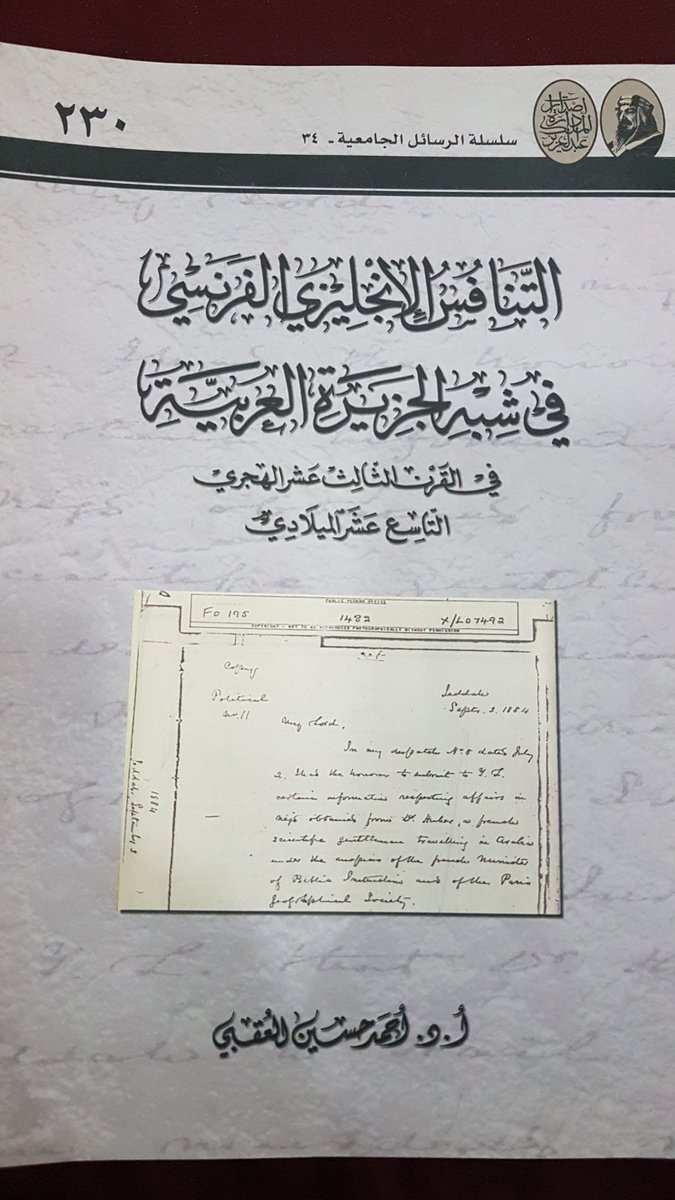 ٢٣٠
سلسلة الرسائل الجامعية - ٣٤
إصدارات
دارة الملك
عبدالعزيز
التَّنافُسُ الإنجليزي الفَرنسِي
في شِبْهِ الجزيرة العربيَّة
في القرن الثَّالث عشر الهجري
التَّاسع عَشَر الميلادي
PUBLIC RECORD OFFICE
FO 195 1482 X/L07492
COPYRIGHT - NOT TO BE REPRODUCED PHOTOGRAPHICALLY WITHOUT PERMISSION
Copy
Jeddah
Political
Septr. 3. 1884
No. 11
My Lord,
In my despatch No 8 dated July
2. I had the honour to submit to Y. L.
certain information respecting affairs in
Nejd obtained from Dr. Huber, a french
scientific gentleman travelling in Arabia
under the auspices of the french Minister
of Public Instruction and of the Paris
Geographical Society.
1884
Jeddah, September 3
أ. د. أحمد حسين العُقبي